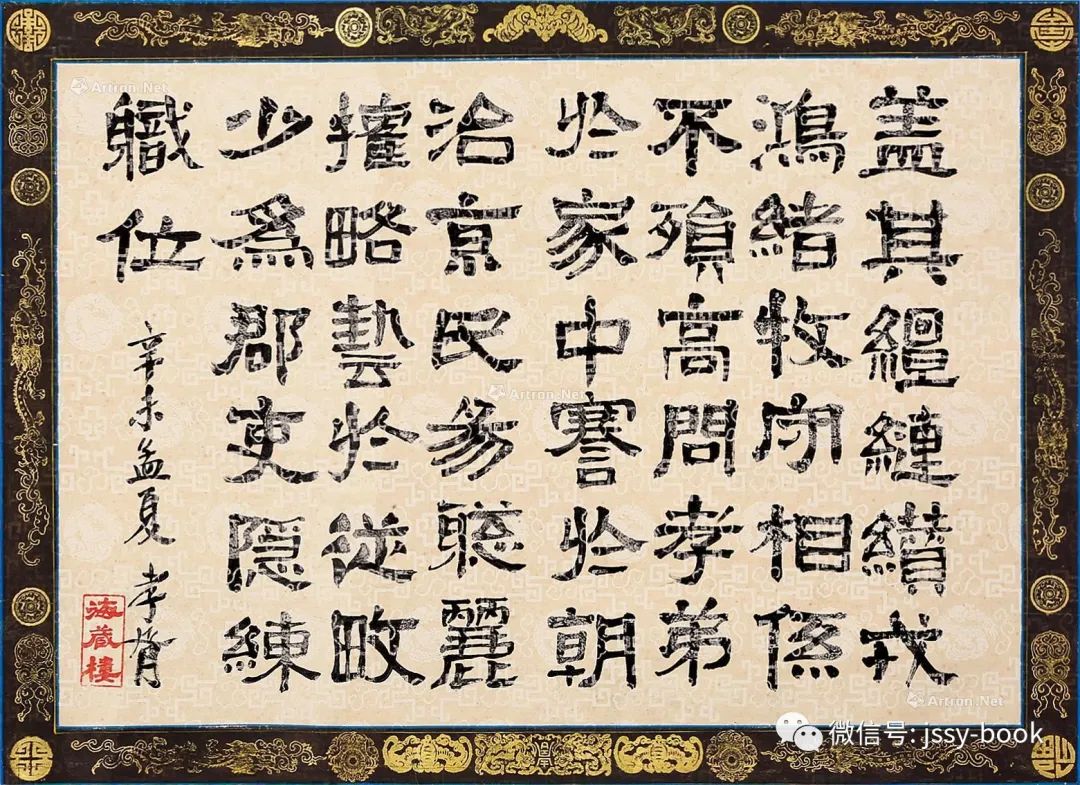 盖其繵縺纘戎
鴻緒牧守相係
不殞高問孝弟
於家中謇於朝
治京氏易聦麗
權略藝於從畋
少爲郡吏隱練
職位
辛未孟夏 孝胥
海藏樓
Artron.Net
Artron.Net
Artron.Net
Artron.Net
微信号: jssy-book